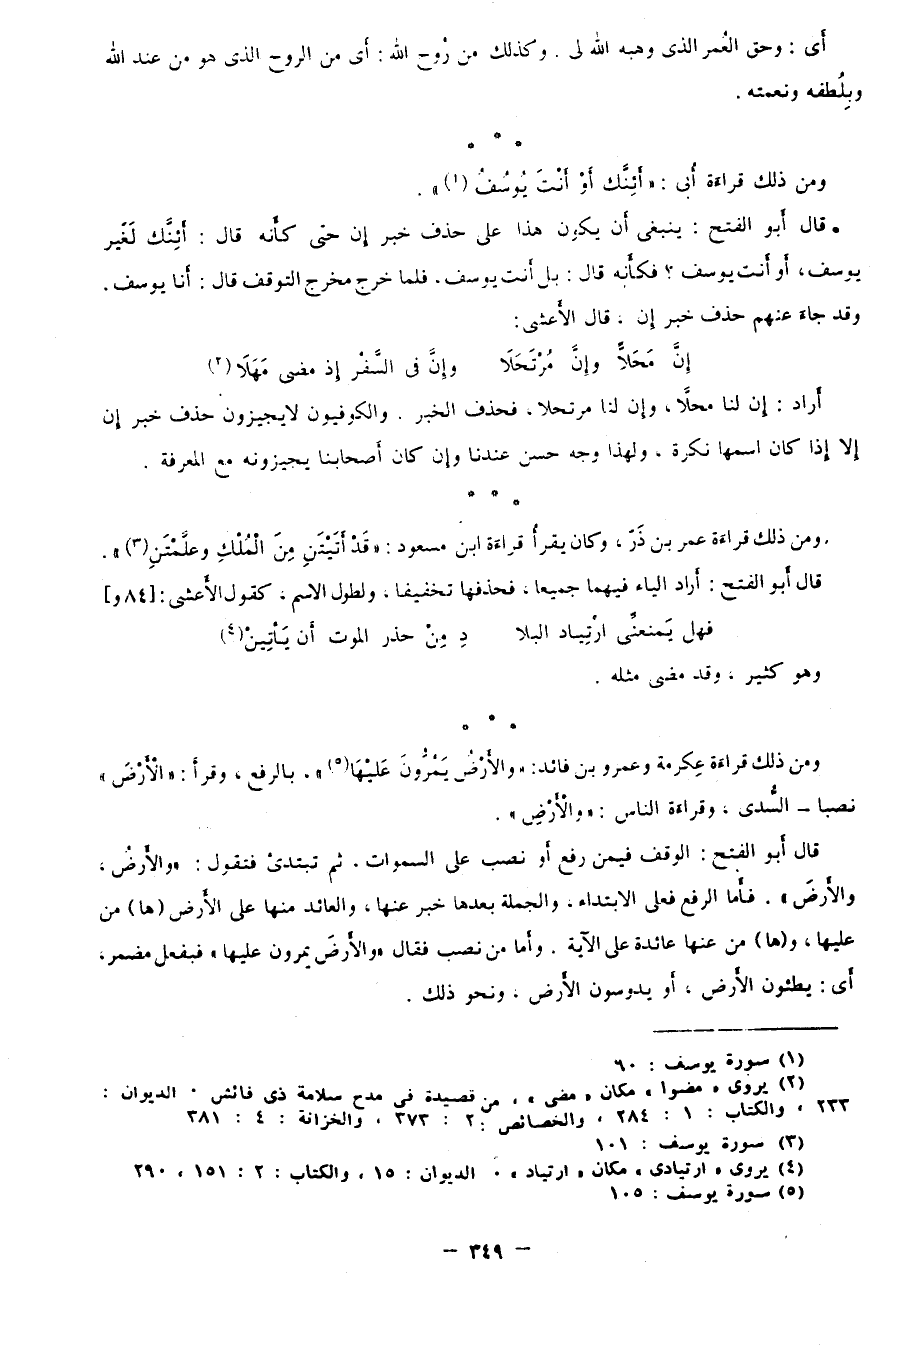 أى : وحق العُمر الذى وهبه الله لى . وكذلك من رُوح الله : أى من الروح الذى هو من عند الله
وبِلُطفه ونعمته .
* * *
ومن ذلك قراءة أُبى : « أَئِنَّك أَوْ أَنْتَ يُوسُفُ (١) » .
قال أبو الفتح : ينبغى أن يكون هذا على حذف خبر إن حتى كأنه قال : أَئِنَّك لَغَير
يوسف ، أو أنت يوسف ؟ فكأنه قال : بل أنت يوسف . فلما خرج مخرج التوقف قال : أنا يوسف .
وقد جاء عنهم حذف خبر إن ، قال الأعشى :
إنَّ مَحَلاًّ وإنَّ مُرْتَحَلَا وإنَّ فى السَّفْر إذ مضى مَهَلَا (٢)
أراد : إن لنا محلًّا ، وإن لنا مرتحلا ، فحذف الخبر . والكوفيون لايجيزون حذف خبر إن
إلا إذا كان اسمها نكرة ، ولهذا وجه حسن عندنا وإن كان أصحابنا يجيزونه مع المعرفة .
* * *
ومن ذلك قراءة عمر بن ذَرّ ، وكان يقرأ قراءة ابن مسعود : « قَدْ أَتَيْتَنِ مِنَ الْمُلْكِ وعلَّمْتَنِ (٣) » .
قال أبو الفتح : أراد الياء فيهما جميعا ، فحذفها تخفيفا ، ولطول الاسم ، كقول الأعشى : [٨٤و]
فهل يَمنعنِّى ارْتِياد البلا دِ مِنْ حذر الموت أن يَأْتِينْ (٤)
وهو كثير ، وقد مضى مثله .
* * *
ومن ذلك قراءة عِكرمة وعمرو بن فائد : « والأَرْضُ يَمُرُّونَ عَلَيْهَا (٥) » . بالرفع ، وقرأ : « الْأَرْضَ »
نصبا – السُّدى ، وقراءة الناس : « والْأَرْضِ » .
قال أبو الفتح : الوقف فيمن رفع أو نصب على السموات . ثم تبتدئ فتقول : « والأَرضُ ،
والأَرضَ » . فأَما الرفع فعلى الابتداء ، والجملة بعدها خبر عنها ، والعائد منها على الأَرض (ها) من
عليها ، و(ها) من عنها عائدة على الآية . وأما من نصب فقال « والأَرضَ يمرون عليها » فبفعل مضمر ،
أى : يطئون الأَرض ، أو يدوسون الأَرض ، ونحو ذلك .
(١) سورة يوسف : ٩٠
(٢) يروى « مضوا » مكان « مضى » ، من قصيدة فى مدح سلامة ذى فائش . الديوان :
٢٣٣ ، والكتاب : ١ : ٢٨٤ ، والخصائص : ٢ : ٣٧٣ ، والخزانة : ٤ : ٣٨١
(٣) سورة يوسف : ١٠١
(٤) يروى « ارتيادى » مكان « ارتياد » . الديوان : ١٥ ، والكتاب : ٢ : ١٥١ ، ٢٩٠
(٥) سورة يوسف : ١٠٥
– ٣٤٩ –